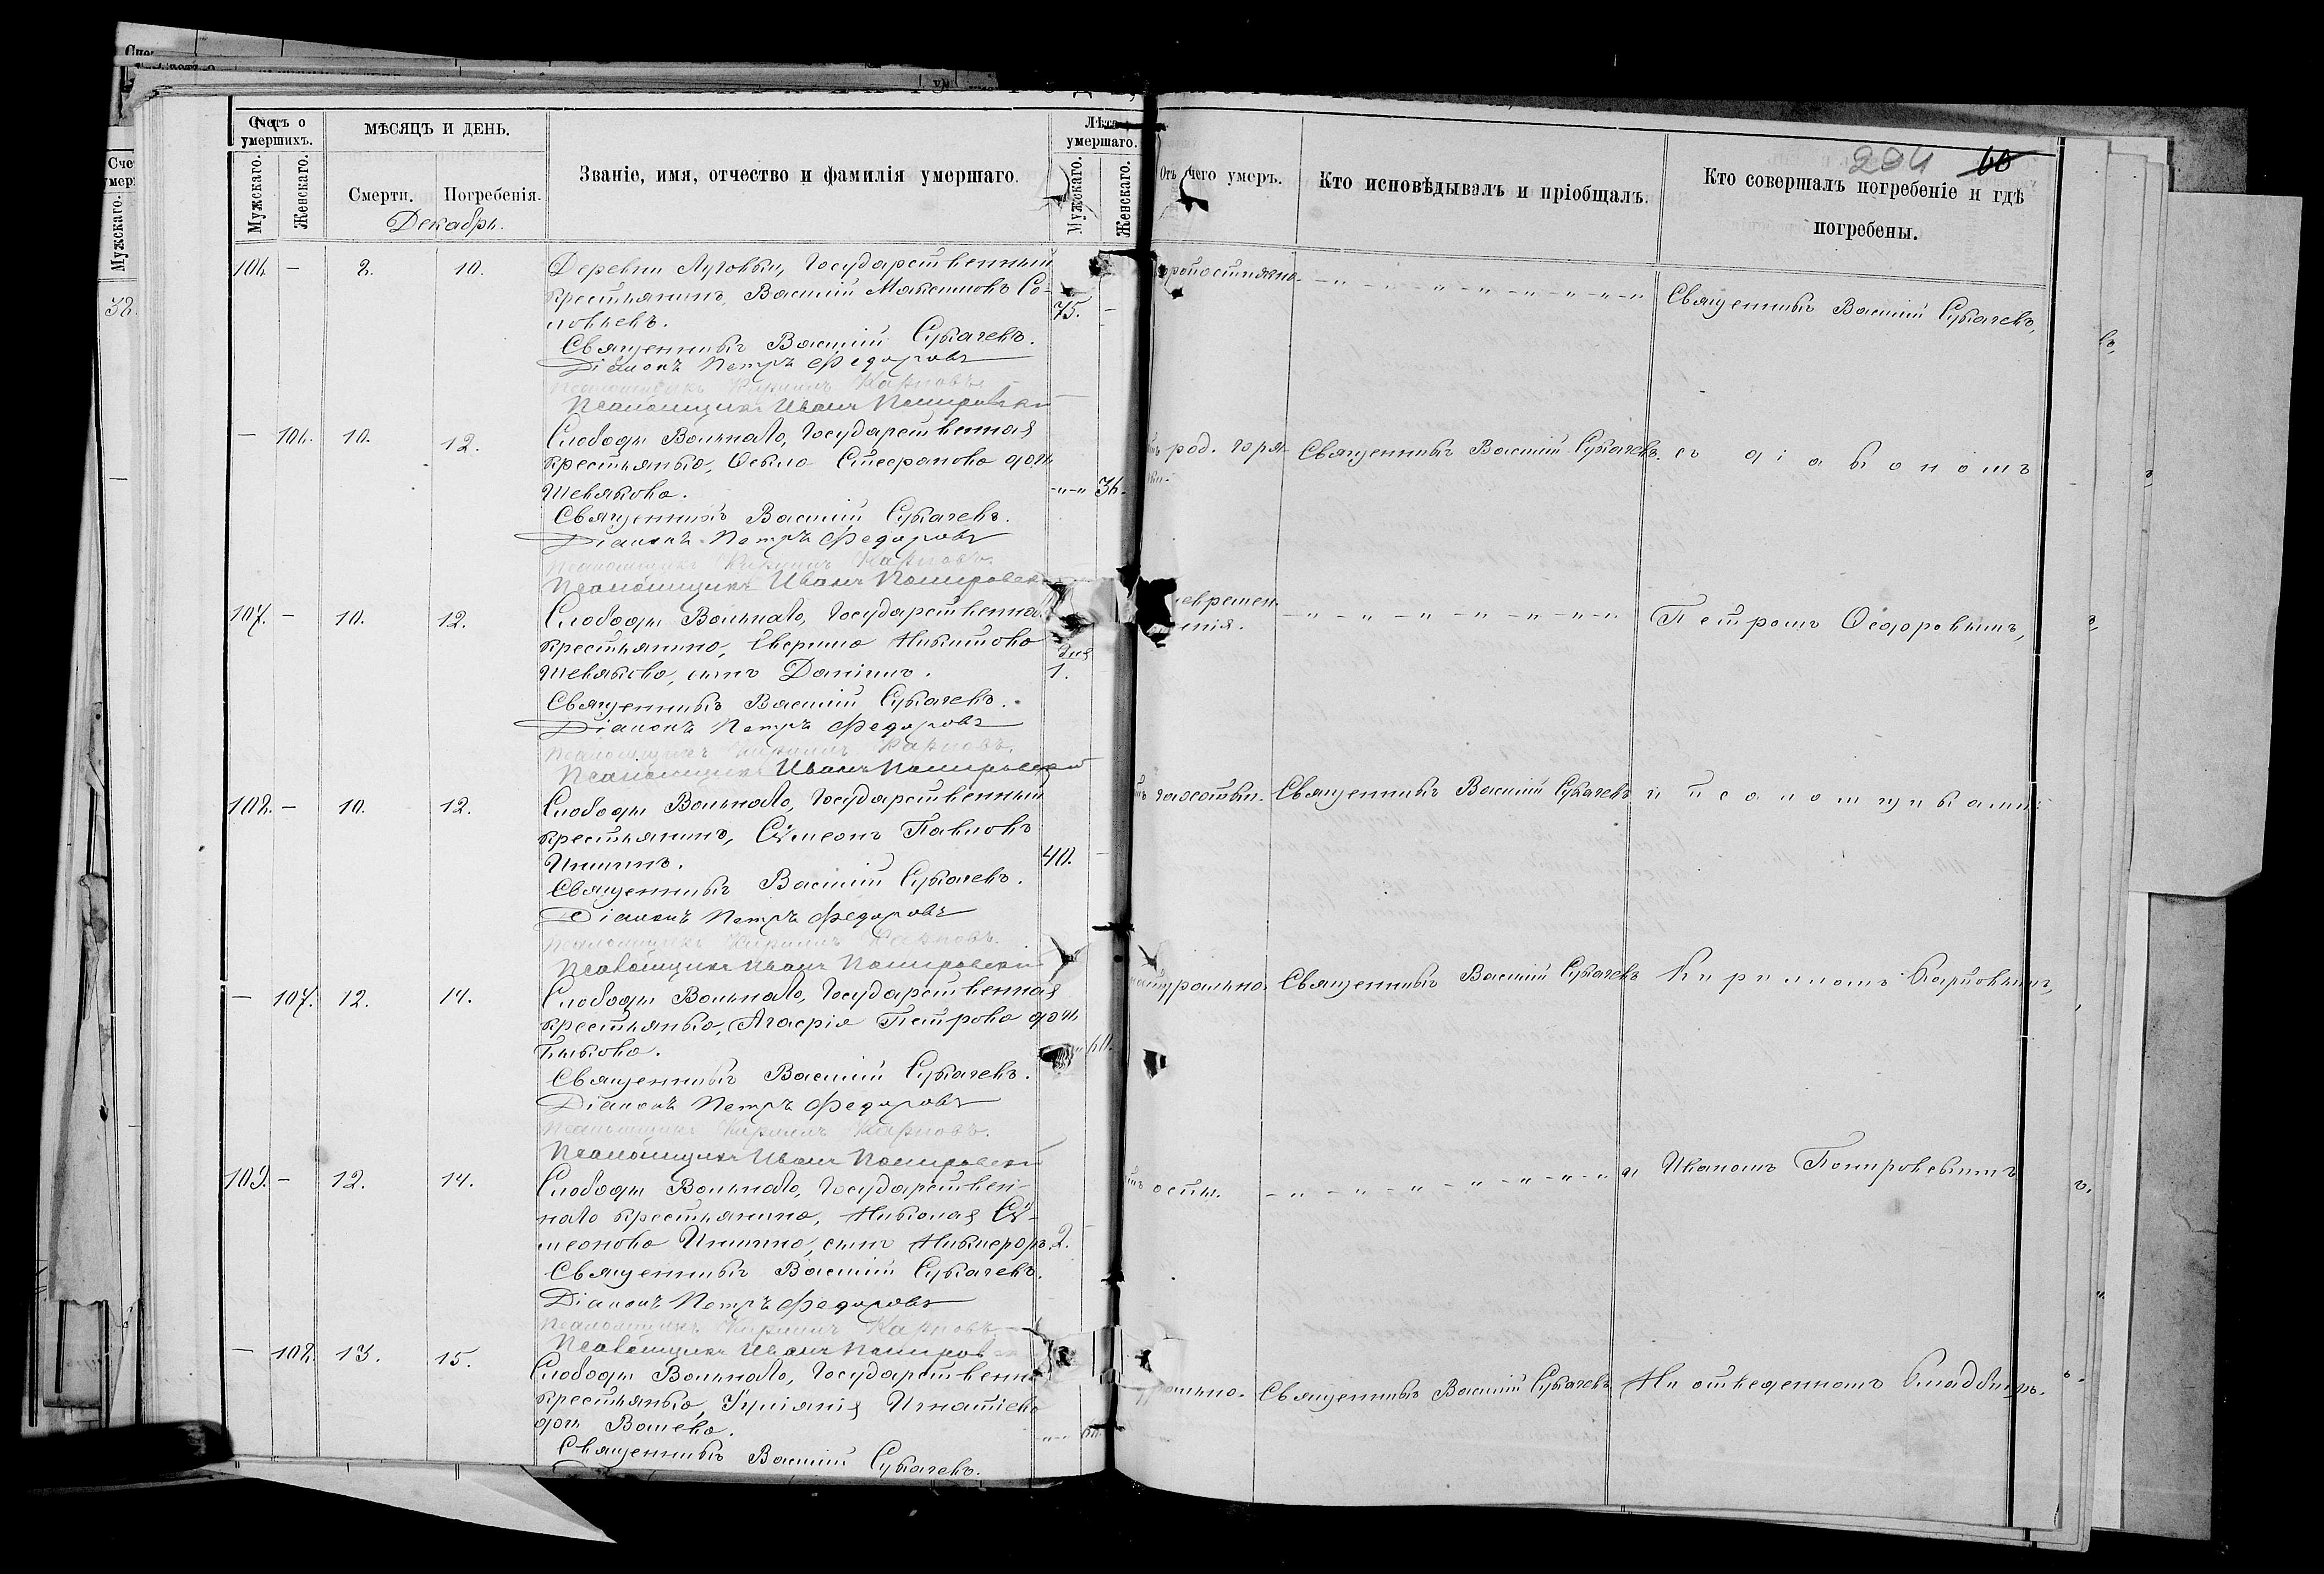 204 60
Счетъ о умершихъ.
Мужскаго.
Женскаго.
МѢСЯЦЪ И ДЕНЬ.
Смерти.
Погребенія.
Декабрь.
Званіе, имя, отчество и фамилія умершаго.
Лѣта умершаго.
Мужскаго.
Женскаго.
Отъ чего умеръ.
Кто исповѣдывалъ и пріобщалъ.
Кто совершалъ погребеніе и гдѣ погребены.
106. — 8. 10.
Деревни Луговки, Государственный
крестьянинъ, Василій Максимовъ Со-
ловьевъ.
75. —
Священникъ Василій Сукачевъ.
Діаконъ Петръ Федоровъ
Псаломщикъ Кириллъ Карповъ.
Псаломщикъ Иванъ Понировскій
Священникъ Василій Сукачевъ,
— 106. 10. 12.
Слободы Вольнаго, Государственная
крестьянка, Стефанова дочь
Шевякова.
36.
Священникъ Василій Сукачевъ.
Діаконъ Петръ Федоровъ
Псаломщикъ Кириллъ Карповъ.
Псаломщикъ Иванъ Понировскій
род. горяч-
ки.
Священникъ Василій Сукачевъ.
съ діакономъ
107. — 10. 12.
Слободы Вольнаго, Государственна
крестьянина, Никитова
Шевякова, сынъ Даніилъ.
дня
1.
Священникъ Василій Сукачевъ.
Діаконъ Петръ Федоровъ
Псаломщикъ Кириллъ Карповъ.
Псаломщикъ Иванъ Понировскій
Петромъ Ѳедоровымъ,
108. — 10. 12.
Слободы Вольнаго, Государственный
крестьянинъ, Сѵмеонъ Павловъ
40. —
Священникъ Василій Сукачевъ.
Діаконъ Петръ Федоровъ
Псаломщикъ Кириллъ Карповъ.
Псаломщикъ Иванъ Понировскій
чахотки.
Священникъ Василій Сукачевъ
и псаломщиками:
— 107. 12. 14.
Слободы Вольнаго, Государственная
крестьянка, Агафія Петрова дочь
60.
Священникъ Василій Сукачевъ.
Діаконъ Петръ Федоровъ
Псаломщикъ Кириллъ Карповъ.
Псаломщикъ Иванъ Понировскій
натурально.
Священникъ Василій Сукачевъ
Кирилломъ Карповымъ,
109. — 12. 14.
Слободы Вольнаго, Государствен-
наго крестьянина, Николая Сѵ-
меонова сынъ Никифоръ.
2. —
Священникъ Василій Сукачевъ.
Діаконъ Петръ Федоровъ
Псаломщикъ Кириллъ Карповъ
Псаломщикъ Иванъ Понировскій
оспы.
и Иваномъ Понировскимъ
— 108. 13. 15.
Слободы Вольнаго, Государственна
крестьянка, Іуліанія Игнатіева
дочь
Священникъ Василій Сукачевъ.
Священникъ Василій Сукачевъ
На отведенномъ кладбищѣ.